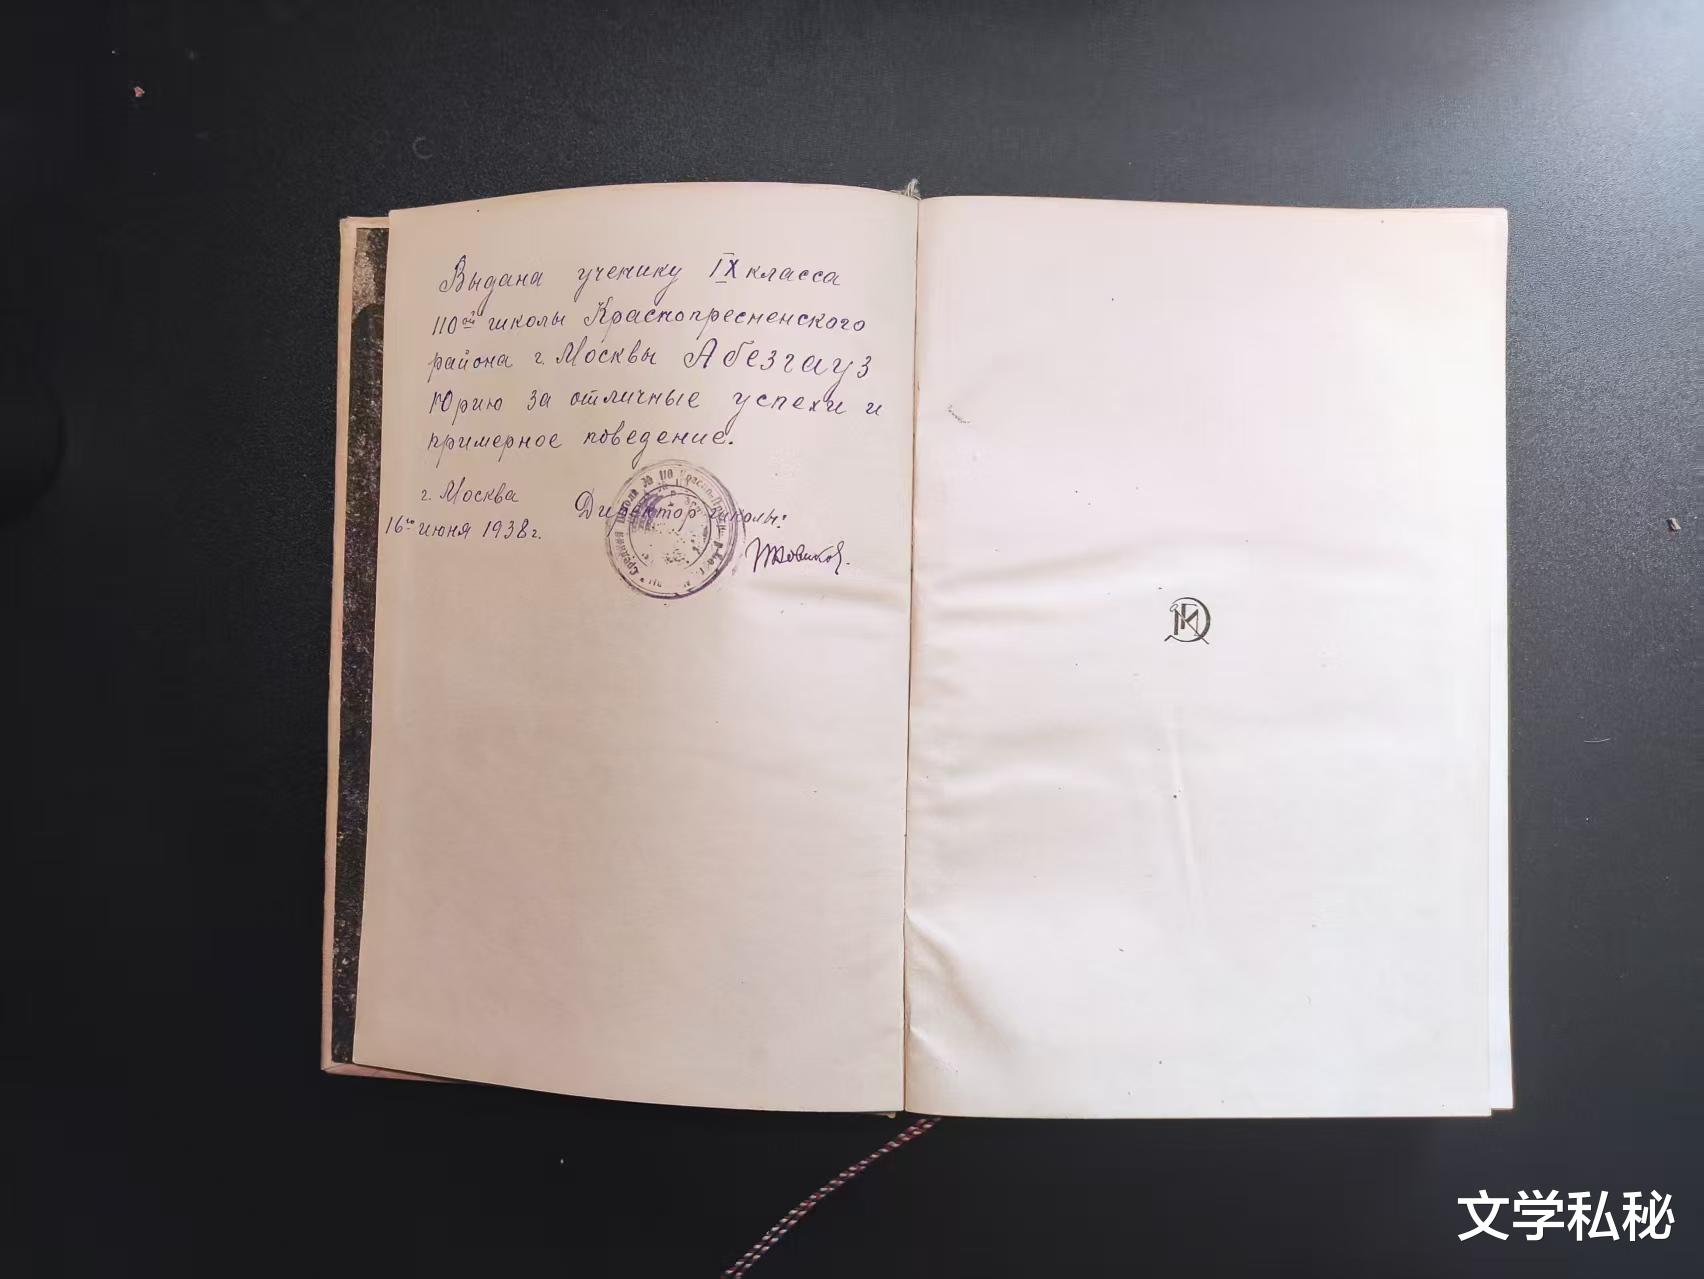 Выдана ученику IX класса
110ой школы Краснопресненского
района г. Москвы Абезгауз
Юрию за отличные успехи и
примерное поведение.
г. Москва
16го июня 1938 г.
Директор школы:
Школа № 110 Красно-Пресн.
文学私秘